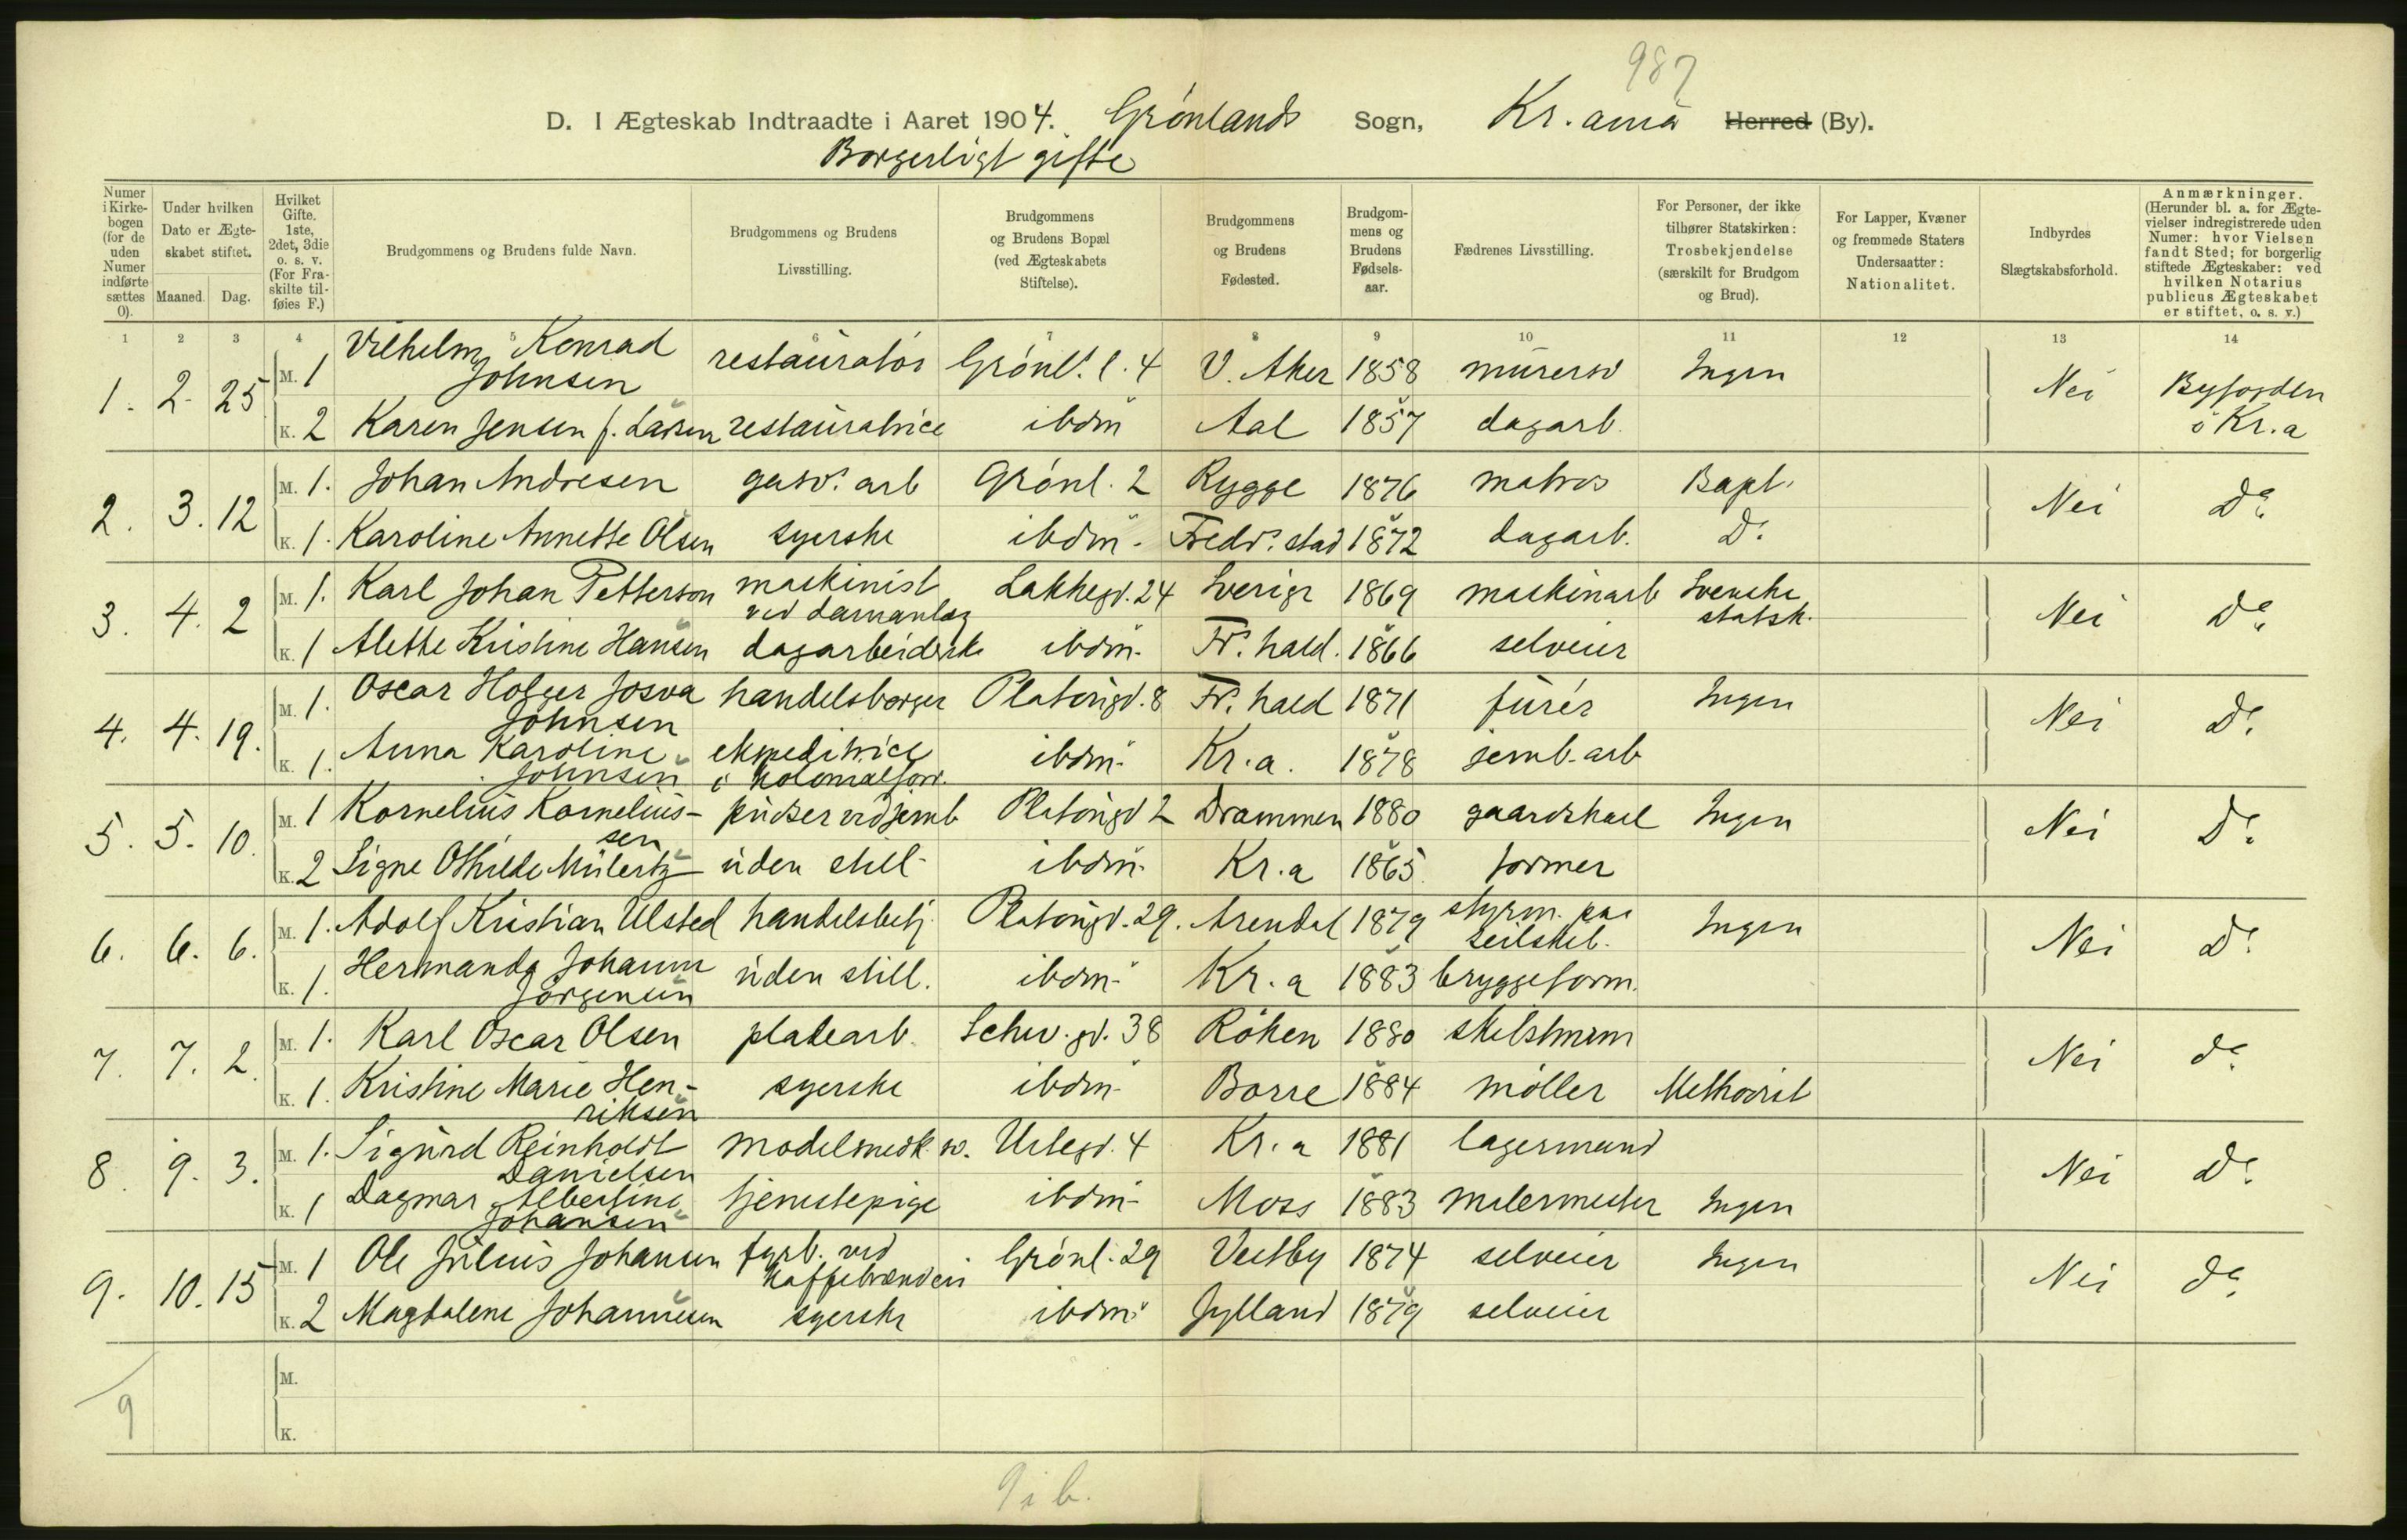 987
D. I Ægteskab Indtraadte i Aaret 1904. Grønlands Sogn, Kr.ania Herred (By).
Borgerligt gifte
Numer i Kirkebogen (for de uden Numer indførte sættes 0).
Under hvilken Dato er Ægteskabet stiftet.
Maaned. Dag.
Hvilket Gifte. 1ste, 2det, 3die o. s. v. (For Fraskilte tilføies F.)
Brudgommens og Brudens fulde Navn.
Brudgommens og Brudens Livsstilling.
Brudgommens og Brudens Bopæl (ved Ægteskabets Stiftelse).
Brudgommens og Brudens Fødested.
Brudgommens og Brudens Fødselsaar.
Fædrenes Livsstilling.
For Personer, der ikke tilhører Statskirken: Trosbekjendelse (særskilt for Brudgom og Brud).
For Lapper, Kvæner og fremmede Staters Undersaatter: Nationalitet.
Indbyrdes Slægtskabsforhold.
Anmærkninger. (Herunder bl. a. for Ægtevielser indregistrerede uden Numer: hvor Vielsen fandt Sted; for borgerlig stiftede Ægteskaber: ved hvilken Notarius publicus Ægteskabet er stiftet, o. s. v.)
1 2 3 4 5 6 7 8 9 10 11 12 13 14
1. 2. 25 M. 1 Vilhelm Konrad Johnsen restauratør Grønl. l. 4 V. Aker 1858 murersv Ingen Nei Byfogden i Kr.a
K. 2 Karen Jensen f. Larsen restauratrice ibdm Aal 1857 dagarb.
2. 3. 12 M. 1. Johan Andresen gasv. arb Grønl. 2 Rygge 1876 matros Bapt. Nei Do.
K. 1. Karoline Annette Olsen syerske ibdm. Fedr. stad 1872 dagarb. Do.
3. 4. 2 M. 1. Karl Johan Petterson maskinist ved damanlæg Lakkegd. 24 Sverige 1869 maskinarb Svenske statsk. Nei Do.
K. 1 Alette Kristine Hansen dagarbeiderske ibdm. Fr. hald. 1866 selveier
4. 4. 19. M. 1. Oscar Holger Josva Johnsen handelsborger Platougd. 8 Fr. hald 1871 furér Ingen Nei Do.
K. 1. Anna Karoline Johnsen ekspeditrice i kolonialforr. ibdm. Kr.a. 1878 jernb. arb
5. 5. 10. M. 1 Kornelius Korneliussen pudser ved jernb Platougd 2 Drammen 1880 gaardskarl Ingen Nei Do.
K. 2 Signe Othilde Mülertz uden still. ibdm. Kr.a 1865 former
6. 6. 6. M. 1. Adolf Kristian Ulsted handelsbetj. Platougd. 29. Arendal 1879 styrm. paa seilskib. Ingen Nei Do.
K. 1. Hermanda Johanne Jørgensen uden still. ibdm. Kr.a 1883 bryggeform.
7. 7. 2. M. 1. Karl Oscar Olsen pladearb. Schw. gd. 38 Røken 1880 skibstmrm Nei do.
K. 1. Kristine Marie Henriksen syerske ibdm. Borre 1884 møller Methodist
8. 9. 3. M. 1. Sigurd Reinholdt Danielsen modelsnedk. sv. Urtegd. 4 Kr.a 1881 lagermand Nei Do.
K. 1 Dagmar Albertine Johansen tjenestepige ibdm. Moss 1883 malermester Ingen
9. 10. 15 M. 1 Ole Julius Johansen fyrb. ved kaffebrænderi Grønl. 29 Vestby 1874 selveier Ingen Nei do.
K. 2 Magdalene Johannesen syerske ibdm. Jylland 1879 selveier
9 M.
K.
9 i b.